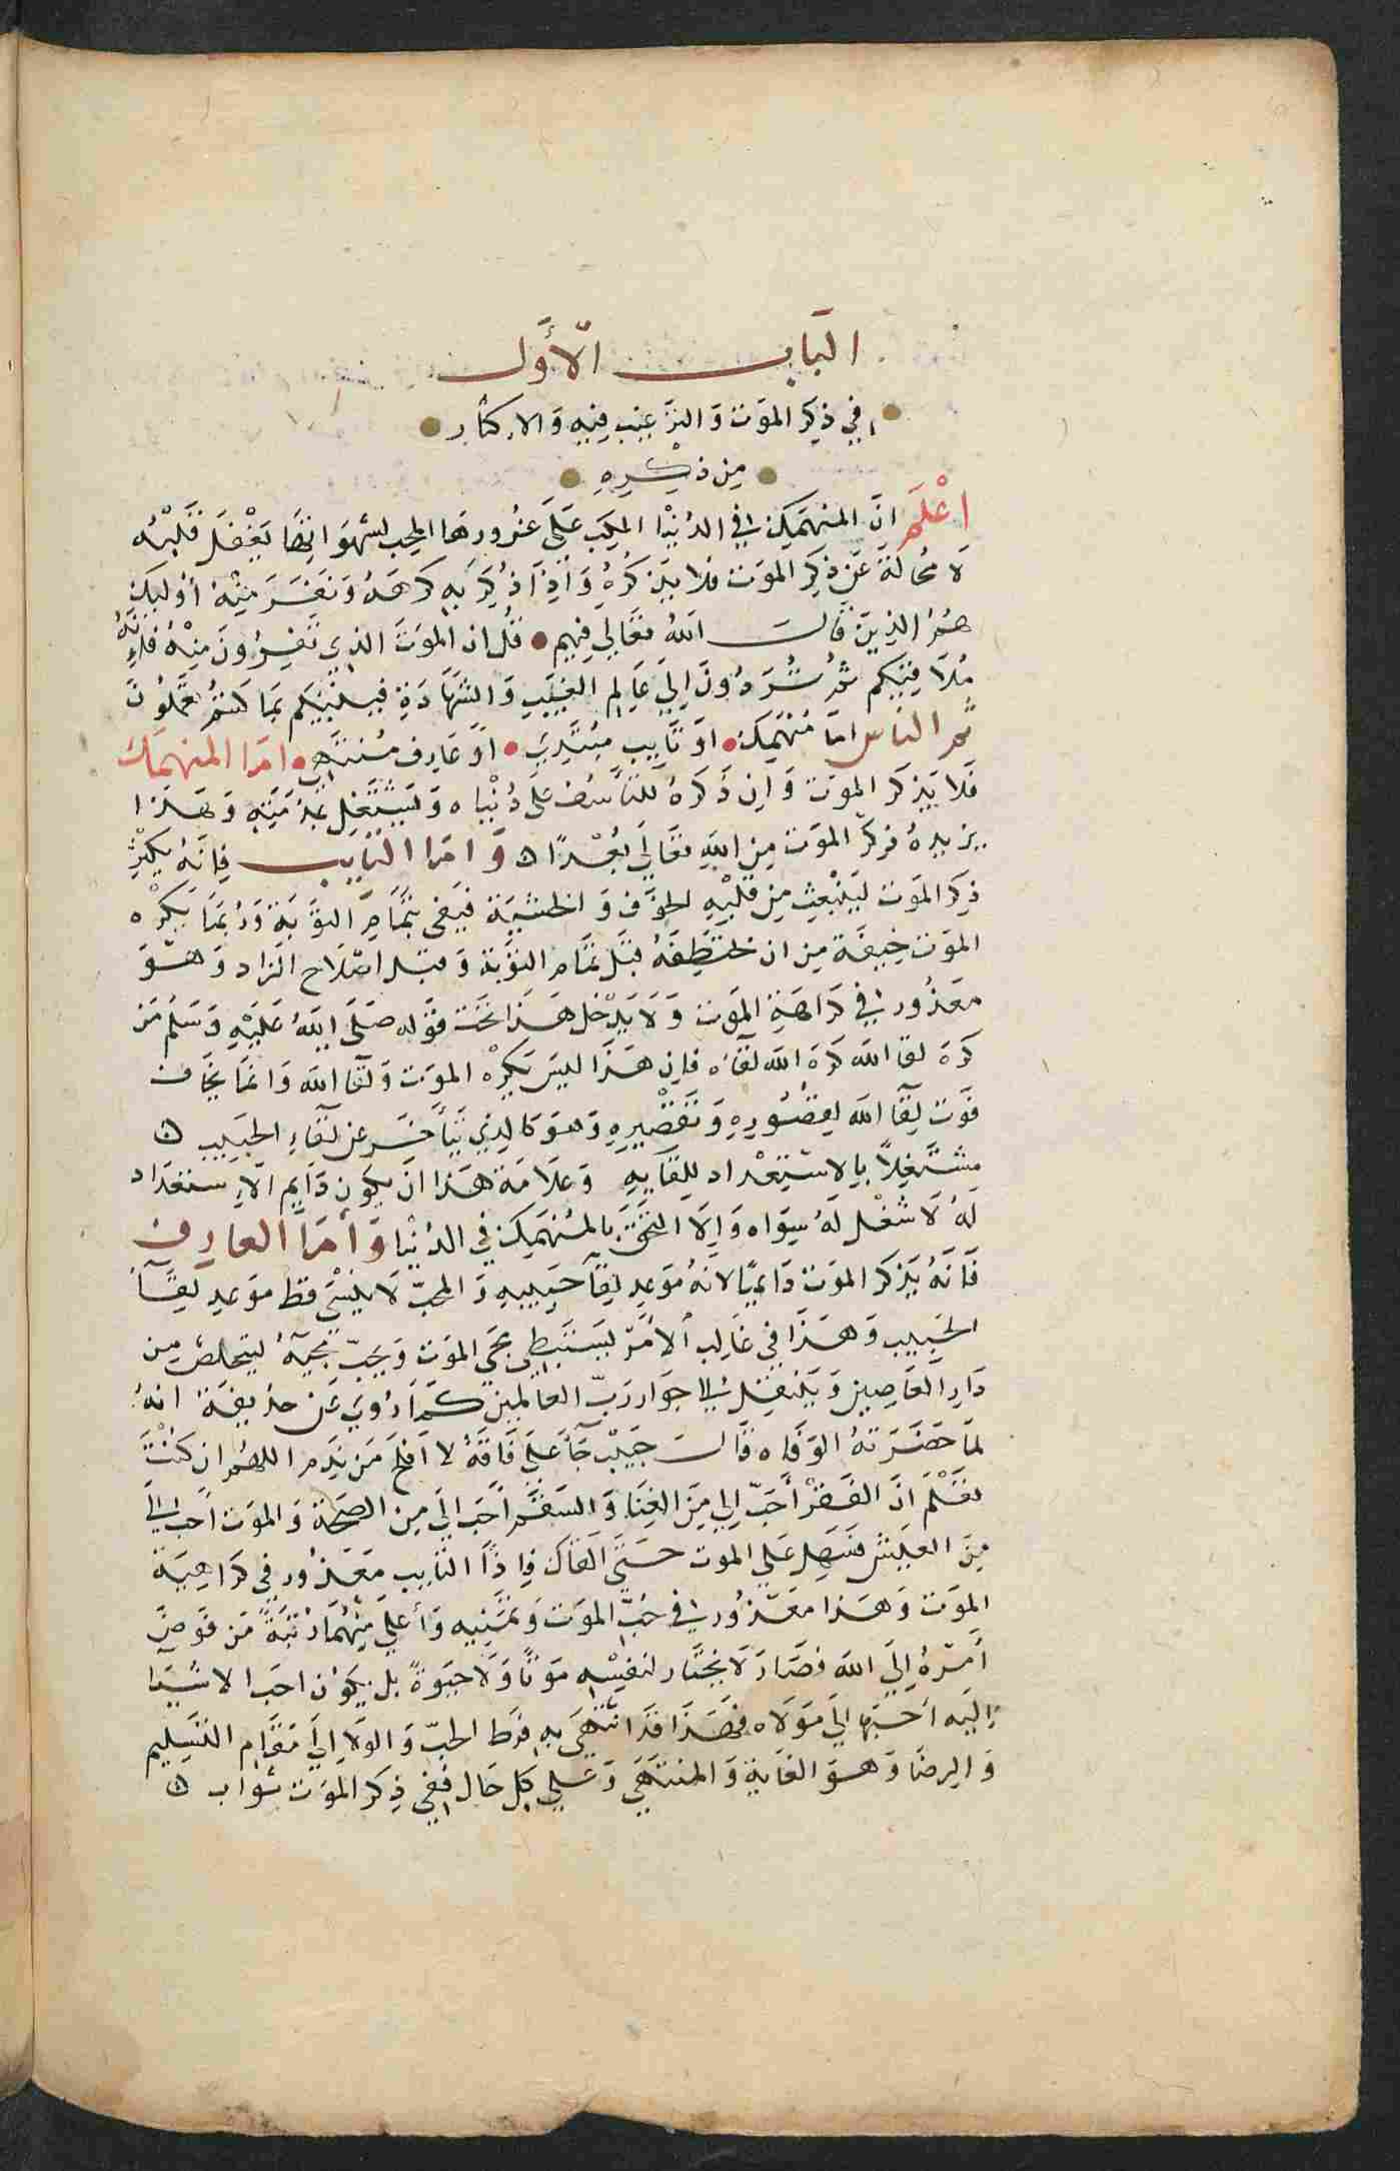 الباب الأوّل
في ذكر الموت والترغيب فيه والإكثار
من ذكره
اعْلم ان المنهمك في الدنيا المكب على غرورها المحب لشهواتها يغفل قلبه
لا محالة عن ذكر الموت فلا يذكره وَاذا ذكر به كرهه ونفر منه أوليك
هم الذين قال الله تعالي فيهم قل ان الموت الذي تفرون منه فانه
ملاقيكم ثم تردون إلي عالم الغيب والشهادة فينبئكم بما كنتم تعملون
ثم الناس اما منهمك او تايب مبتدي او عارف منته اما المنهمك
فلا يذكر الموت وان ذكره للتأسف على دنياه وَليشتغل بمذمته وهذا
يزيده ذكر الموت من الله تعالي بعْدًا ه وَاما التايب فانه يكثر
ذكر الموت لينبعث من قلبه الخوف وَالخشية فيفي بتمام التوبة وربما يكره
الموت خيفة من ان تختطفه قبل تمام التوبة وقبل اصلاح الزاد وهو
معذور في كراهة الموت وَلا يدخل هذا تحت قوله صلى الله عليه وسلم من
كره لقا الله كره الله لقاه فان هذا ليس يكره الموت وَلقا الله وانما يخاف
فوت لقآ الله لقصوره وتقصيره وهو كالذي يتأخر عن لقاءِ الحبيب ه
مشتغلاً بالاستعداد للقايه وَعلامة هذا ان يكون دايم الاستعداد
له لا شغْل له سواه وَالا التحق بالمنهمك في الدنيا وأما العارف
فانه يذكر الموت دايمًا لانه موعد لقآ حبيبه وَالمحبّ لا ينسى قط موعد لقآ
الحبيب وهذا في غالب الأمر يستبطي مجي الموت ويحبّ مجيه ليتخلص من
دار العاصين وينتقل الى جوار ربّ العالمين كما روي عن حذيفة انه
لما حضرته الوفاه قال حبيب جآ على فاقة لا افلح من ندم اللهم ان كنت
تعلم انّ الفقر أحبّ الي من الغنا وَالسقم أحب الي من الصحة والموت أحب الي
من العيش فسهل علي الموت حتى القاك فاذًا التايب معذور في كراهية
الموت وهذا معذور في حبّ الموت وتمنيه وَأعلي منهما رتبة من فوض
أمره إلى الله فصار لا يختار لنفسه موتًا ولا حيوة بل يكون احب الاشيا
إليه أحبها إلى مولاه فهذا قد انتهى به فرط الحبّ وَالولا إلي مقام التسليم
وَالرضا وهو الغاية وَالمنتهي وعلي كل حال ففي ذكر الموت ثواب ه